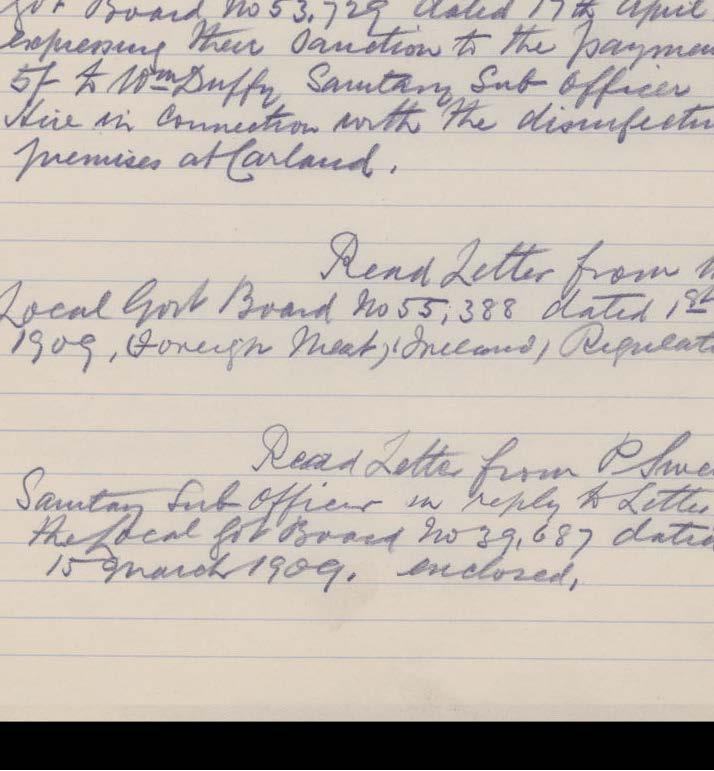 Govt Board No 53,729 dated 17th April
expressing their Sanction to the paymen
5/- to Wm Duffy Sanitary Sub Officer
Hire in Connection with the disinfectin
premises at Carland.
Read Letter from
Local Govt Board No 55,388 dated 1st
1909, (Foreign Meat) (Ireland) Regulati
Read Letter from P Swe
Sanitary Sub Officer in reply to Letter
the Local Govt Board No 39,687 dated
15 March 1909. enclosed,